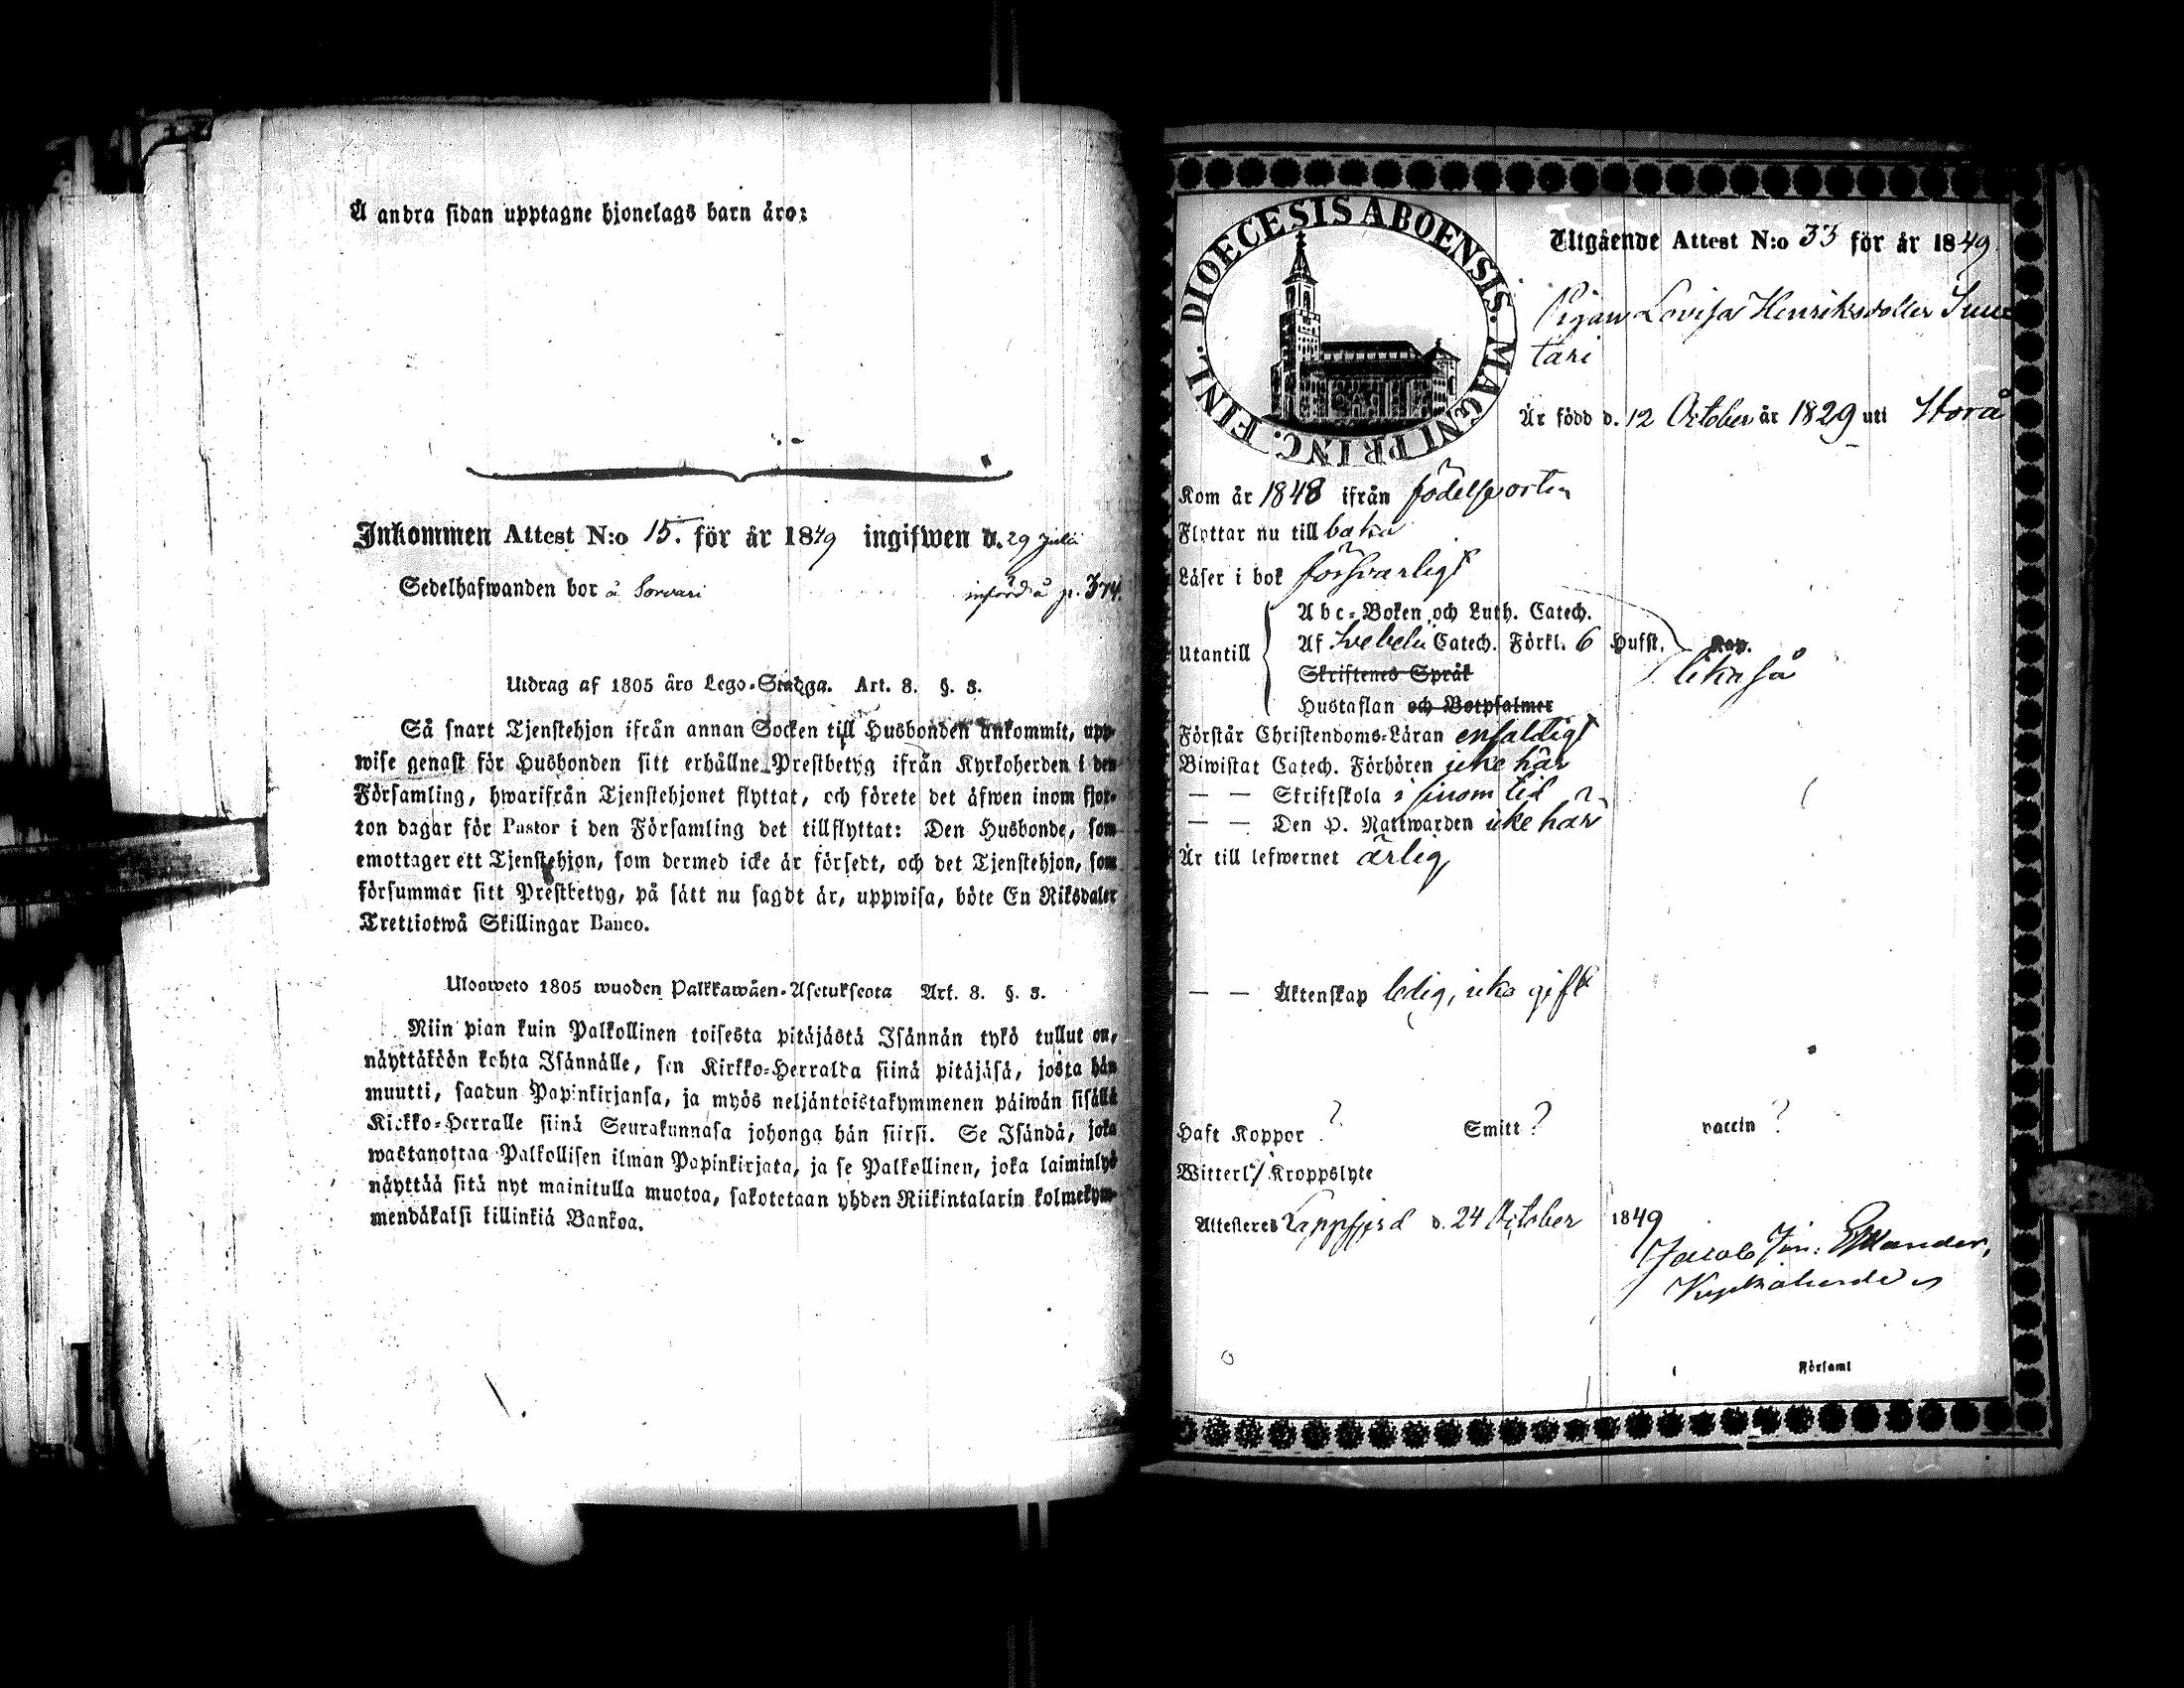 Å andra sidan upptagne hjonelags barn äro:
Inkommen Attest N:o 15. för år 1849 ingifwen d. 29 Julii
Sedelhafwanden bor å Sorvari införd å p. 374.
Utdrag af 1805 åro Lego-Stadga. Art. 8. §. 3.
Så snart Tjenstehjon ifrån annan Socken till Husbonden ankommit, upp-
wise genast för Husbonden sitt erhållne Prestbetyg ifrån Kyrkoherden i den
Församling, hwarifrån Tjenstehjonet flyttat, och förete det äfwen inom fjor-
ton dagar för Pastor i den Församling det tillflyttat: Den Husbonde, som
emottager ett Tjenstehjon, som dermed icke är försedt, och det Tjenstehjon, som
försummar sitt Prestbetyg, på sätt nu sagdt är, uppwisa, böte En Riksdaler
Trettiotwå Skillingar Banco.
Ulosweto 1805 wuoden Palkkawäen-Asetuksesta Art. 8. §. 3.
Niin pian kuin Palkollinen toisesta pitäjästä Isännän tykö tullut on,
näyttäköön kohta Isännälle, sen Kirkko-Herralda siinä pitäjäsä, josta hän
muutti, saadun Papinkirjansa, ja myös neljäntoistakymmenen päiwän sisällä
Kirkko-Herralle siinä Seurakunnasa johonga hän siirsi. Se Isändä, joka
wastanottaa Palkollisen ilman Papinkirjata, ja se Palkollinen, joka laiminlyö
näyttää sitä nyt mainitulla muotoa, sakotetaan yhden Riikintalarin kolmekym-
mendäkaksi killinkiä Bankoa.
DIOECESIS ABOENSIS. MAGNI PRINC. FINL.
Utgående Attest N:o 33 för år 1849.
Pigan Lovisa Henriksdotter
tari
Är född d. 12 October år 1829 uti Storå
Kom år 1848 ifrån födelseorten
Flyttar nu till baka
Läser i bok försvarligt
Utantill
Abc-Boken och Luth. Catech.
Af Svebelii Catech. Förkl. 6 Hufst. Kap.
likaså
Skriftenes Språk
Hustaflan och Botpsalmer
Förstår Christendoms-Läran enfaldigt
Biwistat Catech. Förhören icke här
— — Skriftskola i sinom tid
— — Den H. Nattwarden icke här
Är till lefwernet ärlig
— — Äktenskap ledig, icke gift
Haft Koppor ? Smitt ? vaccin ?
Witterl. Kroppslyte
Attesteres Lappfjerd d. 24 October 1849
Jacob
Kyrkoherde
Församl